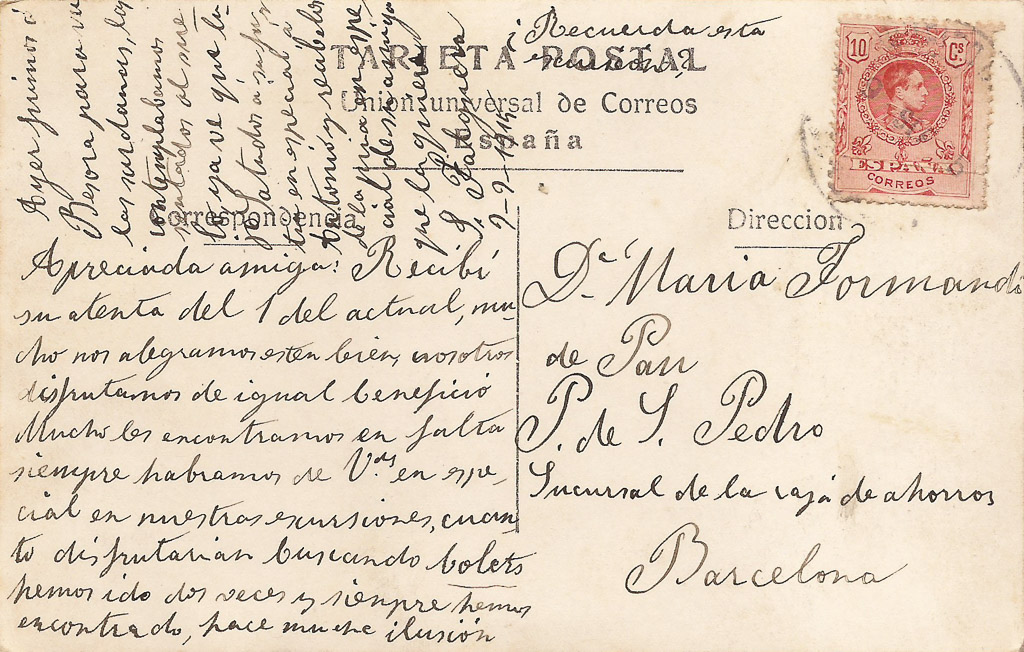 ¡Recuerda esta
excursión?
TARJETA POSTAL
Union universal de Correos
España
10 Cs
ESPAÑA
CORREOS
Correspondencia
Direccion
Apreciada amiga: Recibí
su atenta del 1 del actual, mu-
cho nos alegramos esten bien, nosotros
disfrutamos de igual beneficio
Mucho les encontramos en falta
siempre hablamos de Vds en espe,
cial en nuestras escursiones, cuan
to disfrutarian buscando bolets
hemos ido dos veces y siempre hemos
encontrado, hace mucha ilusión
Ayer fuimos á
Besora para ver
las sardanas,
contemplabamos
sentados al
ya ve que
Saludos á
tu en especial á
Antonio y reciba los
de la mia en espe
cial de su amiga
que la quiere
S. Fabregas
9-9-1915
Da. Maria Formandi
de Pau
P. de S. Pedro
Sucursal de la caja de ahorros
Barcelona